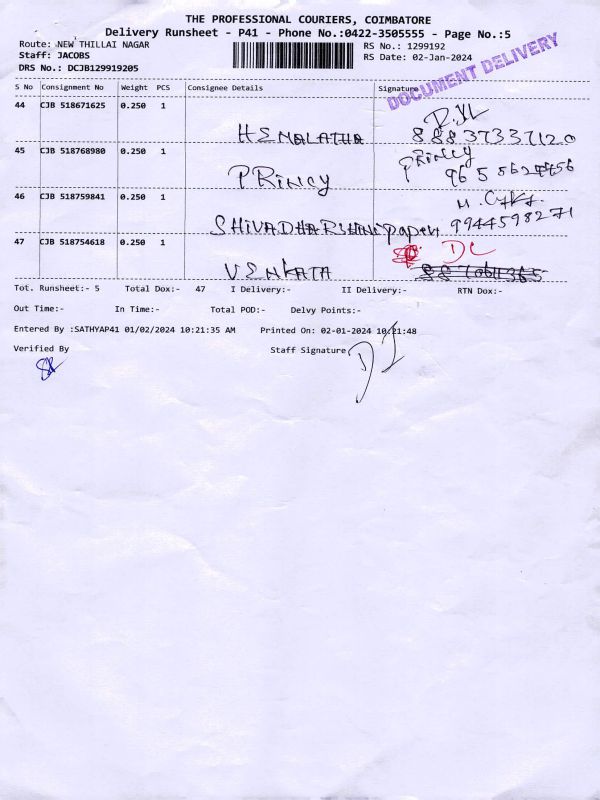 THE PROFESSIONAL COURIERS, COIMBATORE
Delivery Runsheet - P41 - Phone No.:0422-3505555 - Page No.:5
Route: NEW THILLAI NAGAR
Staff: JACOBS
DRS No.: DCJB129919205
RS No.: 1299192
RS Date: 02-Jan-2024
DOCUMENT DELIVERY
S No Consignment No Weight PCS Consignee Details Signature
44 CJB 518671625 0.250 1
HEMALATHA 8883733712 0
45 CJB 518768980 0.250 1 PRINCY
PRINCY
46 CJB 518759841 0.250 1
SHIVADHARSHINI papers 9944598271
47 CJB 518754618 0.250 1 DL
VENKATA
Tot. Runsheet:- 5 Total Dox:- 47 I Delivery:- II Delivery:- RTN Dox:-
Out Time:- In Time:- Total POD:- Delvy Points:-
Entered By :SATHYAP41 01/02/2024 10:21:35 AM Printed On: 02-01-2024 10:21:48
Verified By Staff Signature